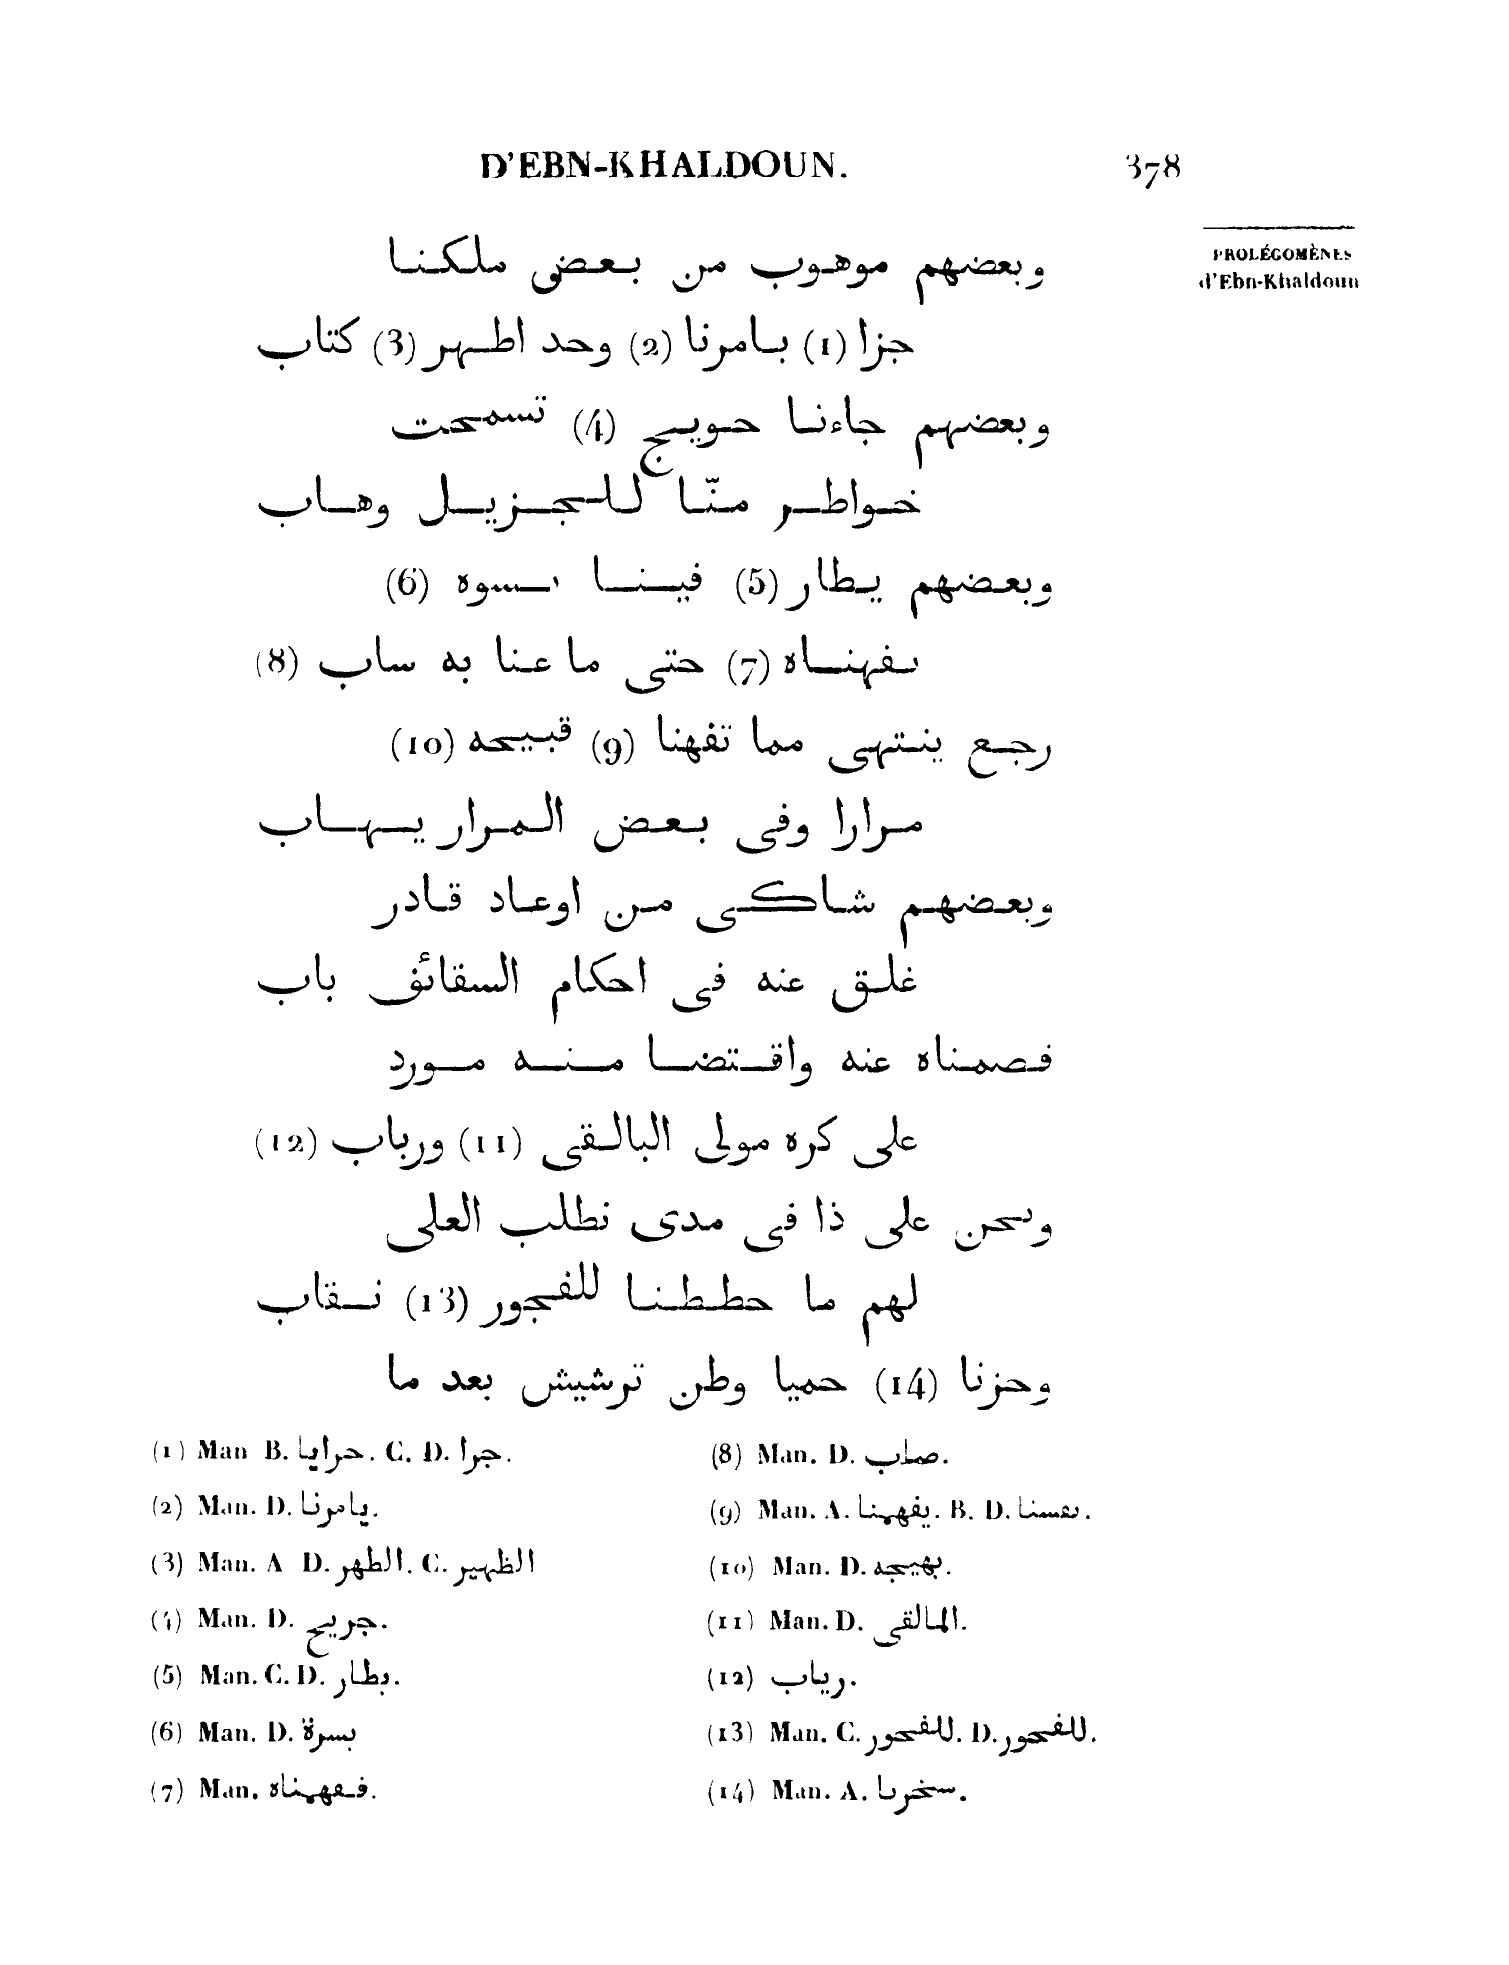 D'EBN-KHALDOUN. 378
PROLÉGOMÈNES
d'Ebn-Khaldoun
وبعضهم موهوب من بعض ملكنا
جزا (1) بامرنا (2) وحد اطهر (3) كتاب
وبعضهم جاءنا حويج (4) تسمحت
خواطر منّا للجزيل وهاب
وبعضهم يطار (5) فينا (6)
(7) حتى ما عنا به ساب (8)
رجع ينتهى مما تفهنا (9) قبيحه (10)
مرارا وفى بعض المرار يهاب
وبعضهم شاكى من اوعاد قادر
غلق عنه فى احكام السقائف باب
فصمناه عنه واقتضا منه مورد
على كره مولى البالقى (11) ورباب (12)
ونحن على ذا فى مدى نطلب العلى
لهم ما حططنا للفجور (13) نقاب
وحزنا (14) حميا وطن ترشيش بعد ما
(1) Man B. حرايا. C. D. جرا.
(2) Man. D. يامرنا.
(3) Man. A D. الطهر. C. الظهير
(4) Man. D. جريح.
(5) Man. C. D. بطار.
(6) Man. D. بسرة
(7) Man. فقهيناه.
(8) Man. D. صاب.
(9) Man. A. يفهينا. B. D.
(10) Man. D. بهيجه.
(11) Man. D. المالقى.
(12) رياب.
(13) Man. C. للفحور. D. للفحور.
(14) Man. A. سخرنا.